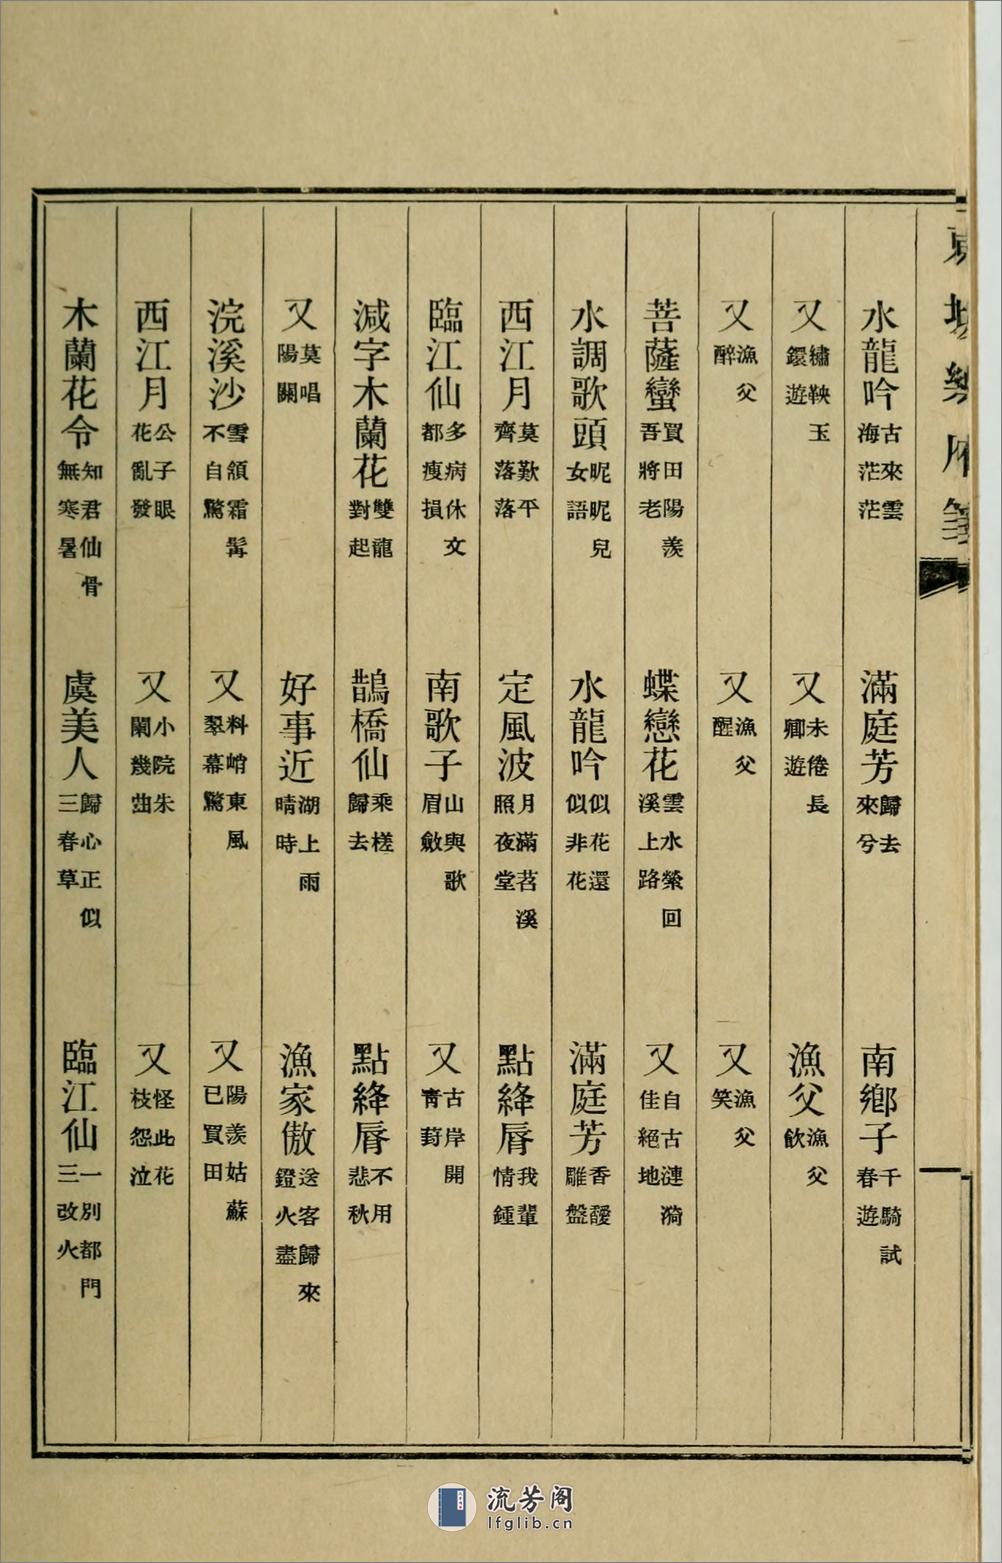 東坡樂府箋
水龍吟 古來雲海茫茫 滿庭芳 歸去來兮 南鄉子 千騎試春遊
又 繡鞅玉鐶遊 又 未倦長卿遊 漁父 漁父飲
又 漁父醉 又 漁父醒 又 漁父笑
菩薩蠻 買田陽羨吾將老 蝶戀花 雲水縈回溪上路 又 自古漣漪佳絕地
水調歌頭 昵昵兒女語 水龍吟 似花還似非花 滿庭芳 香靉雕盤
西江月 莫歎平齊落落 定風波 月滿苕溪照夜堂 點絳脣 我輩情鍾
臨江仙 多病休文都瘦損 南歌子 山與歌眉斂 又 古岸開青葑
減字木蘭花 雙龍對起 鵲橋仙 乘槎歸去 點絳脣 不用悲秋
又 莫唱陽關 好事近 湖上雨晴時 漁家傲 送客歸來鐙火盡
浣溪沙 雪頷霜髯不自驚 又 料峭東風翠幕驚 又 陽羨姑蘇已買田
西江月 公子眼花亂發 又 小院朱闌幾曲 又 怪此花枝怨泣
木蘭花令 知君仙骨無寒暑 虞美人 歸心正似三春草 臨江仙 一別都門三改火
流芳阁
lfglib.cn